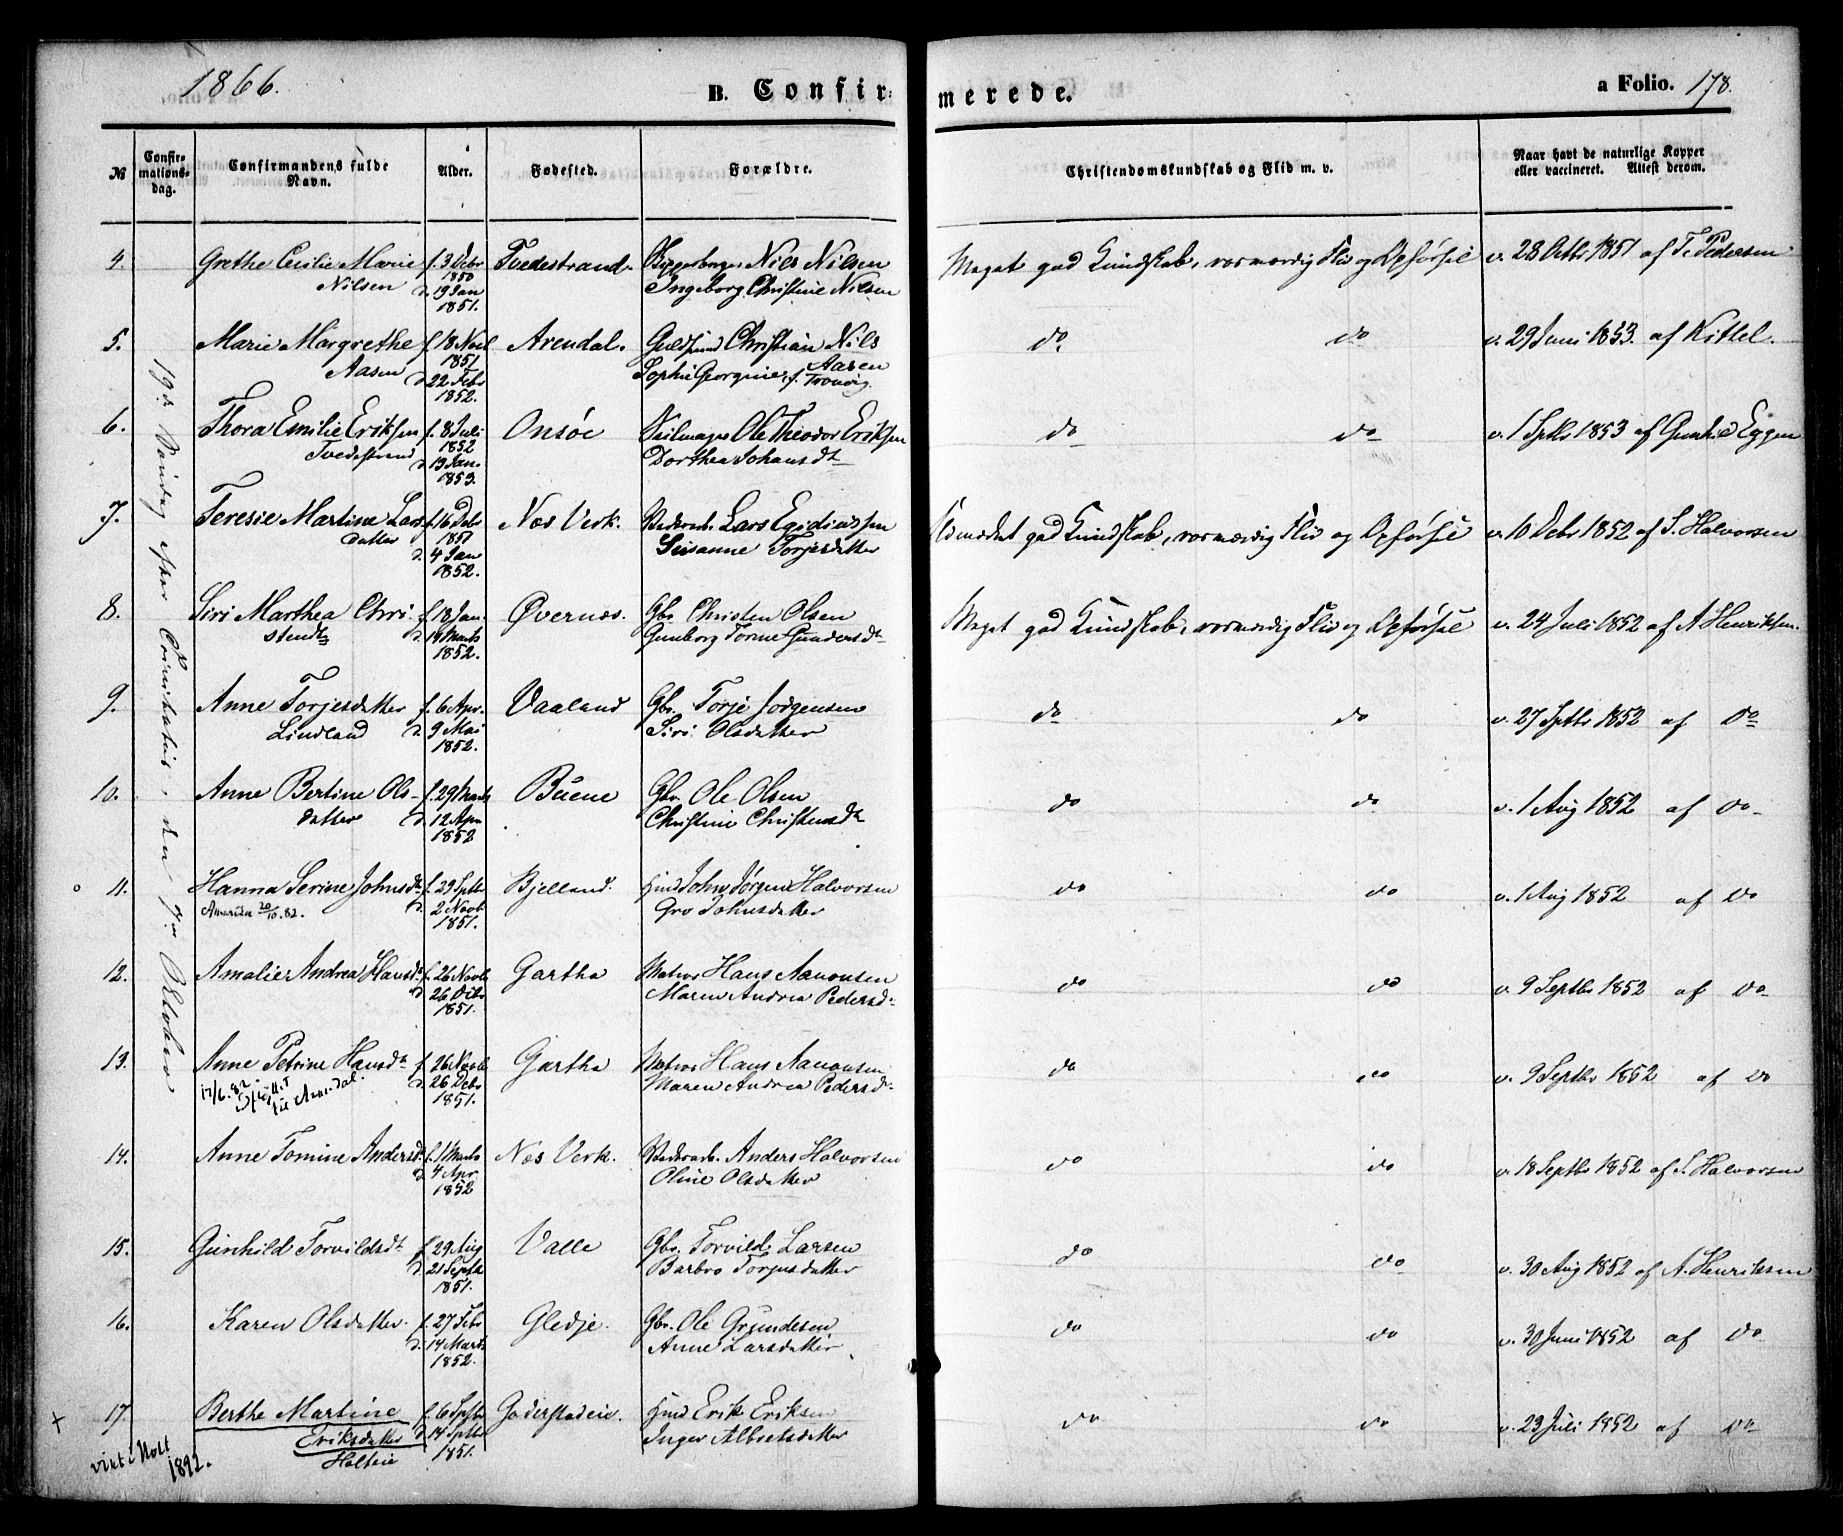 1866.
B. Confirmerede.
a Folio. 178.
№
Confir-
mations-
dag.
Confirmandens fulde
Navn.
Alder.
Fødested.
Forældre.
Christendomskundskab og Flid m. v.
Naar havt de naturlige Kopper
eller vaccineret. Attest derom.
19de Søndag efter Trinitatis, den 7de Oktober
4. Grethe Cecilie Marie f. 3 Debr Tvedestrand. Nils Nilsen Meget god Kundskab, rosværdig Flid og Opførsel v. 28 Octbr 1851 af T. Pedersen
Nilsen 1850 Ingeborg Christine Nilsen
d. 19 Jan
1851.
5. Marie Margrethe f. 18 Novb Arendal. Guldsmed Christian Nils do do v. 29 Juni 1853. af Kittel.
Aasen 1851 Aasen
d. 22 Febr Sophie Georgine, f. Tronvig.
1852.
6. Thora Emilie Eriksen f. 8 Juli Onsøe Seilmager Ole Theodor Eriksen do do v. 1 Sptbr 1853 af Gunhild Eggen
Tvedestrand 1852 Dorthea Johansdt
d. 13 Jan.
1853.
7. Teresie Martine Lars- f. 16 Debr Næs Verk. Værksarb. Lars Egidiussen Udmærket god Kundskab, rosværdig Flid og Opførsel v. 10 Debr 1852 af S. Halvorsen
datter 1851 Susanne Torjesdatter
d. 4 Jan
1852.
8. Siri Marthea Chri- f. 18 Jan. Øvernæs. Gbr. Christen Olsen Meget god Kundskab, rosværdig Flid og Opførsel v. 24 Juli 1852 af A Henriksen.
stendt d. 14 Marts Gunborg Tomine Gundersdt
1852.
9. Anne Torjesdatter f. 6 Apr. Vaaland Gbr. Torje Jørgensen do do v. 27 Sptbr 1852 af Do
Lindland d. 9 Mai Siri Olsdatter
1852.
10. Anne Bertine Ols- f. 29 Marts Buene Gbr. Ole Olsen do do v. 1 Aug 1852 af Do
datter d. 12 Apr Christine Christensdt
1852
11. Hanna Serine Johnsdt f. 29 Sptbr Bjelland. Huusd John Jørgen Halvorsen do do v. 1 Aug 1852 af Do
Amerika 20/10. 82. d. 2 Novb Gro Johnsdatter
1851.
12. Amalie Andrea Hansd. f. 26 Novb Gartha Matros Hans Aanonsen do do v. 9 Septbr 1852 af Do
d. 26 Debr Maren Andrea Pedersd.
1851.
13. Anne Petrine Hansdt f. 26 Novb Gartha Matros Hans Aanonsen do do v. 9 Septbr 1852 af do
17/6. 82 d. 26 Debr Maren Andrea Pedersd
til Arendal. 1851.
14. Anne Tomine Andersd. f. 1 Marts Næs Verk. Værksarb. Anders Halvorsen do do v. 18 Septbr 1852 af S. Halvorsen
d. 4 Apr. Oline Olsdatter
1852
15. Gunhild Torvildsdt f. 29 Aug Valle Gbr. Torvild Larsen do do v. 30 Aug 1852 af A. Henriksen
d. 21 Septbr Barbro Torjusdatter
1851.
16. Karen Olsdatter f. 27 Febr Gledje. Gbr. Ole Gundersen do do v. 30 Juni 1852 af Do
d. 14 Marts Anne Larsdatter
1852.
17. Berthe Martine f. 6 Sptbr Goderstadeie. Huusd Erik Eriksen do do v. 23 Juli 1852 af Do
Eriksdatter d. 14 Sptbr Inger Albretsdatter
Holteie 1851.
viet i Holt
1892.